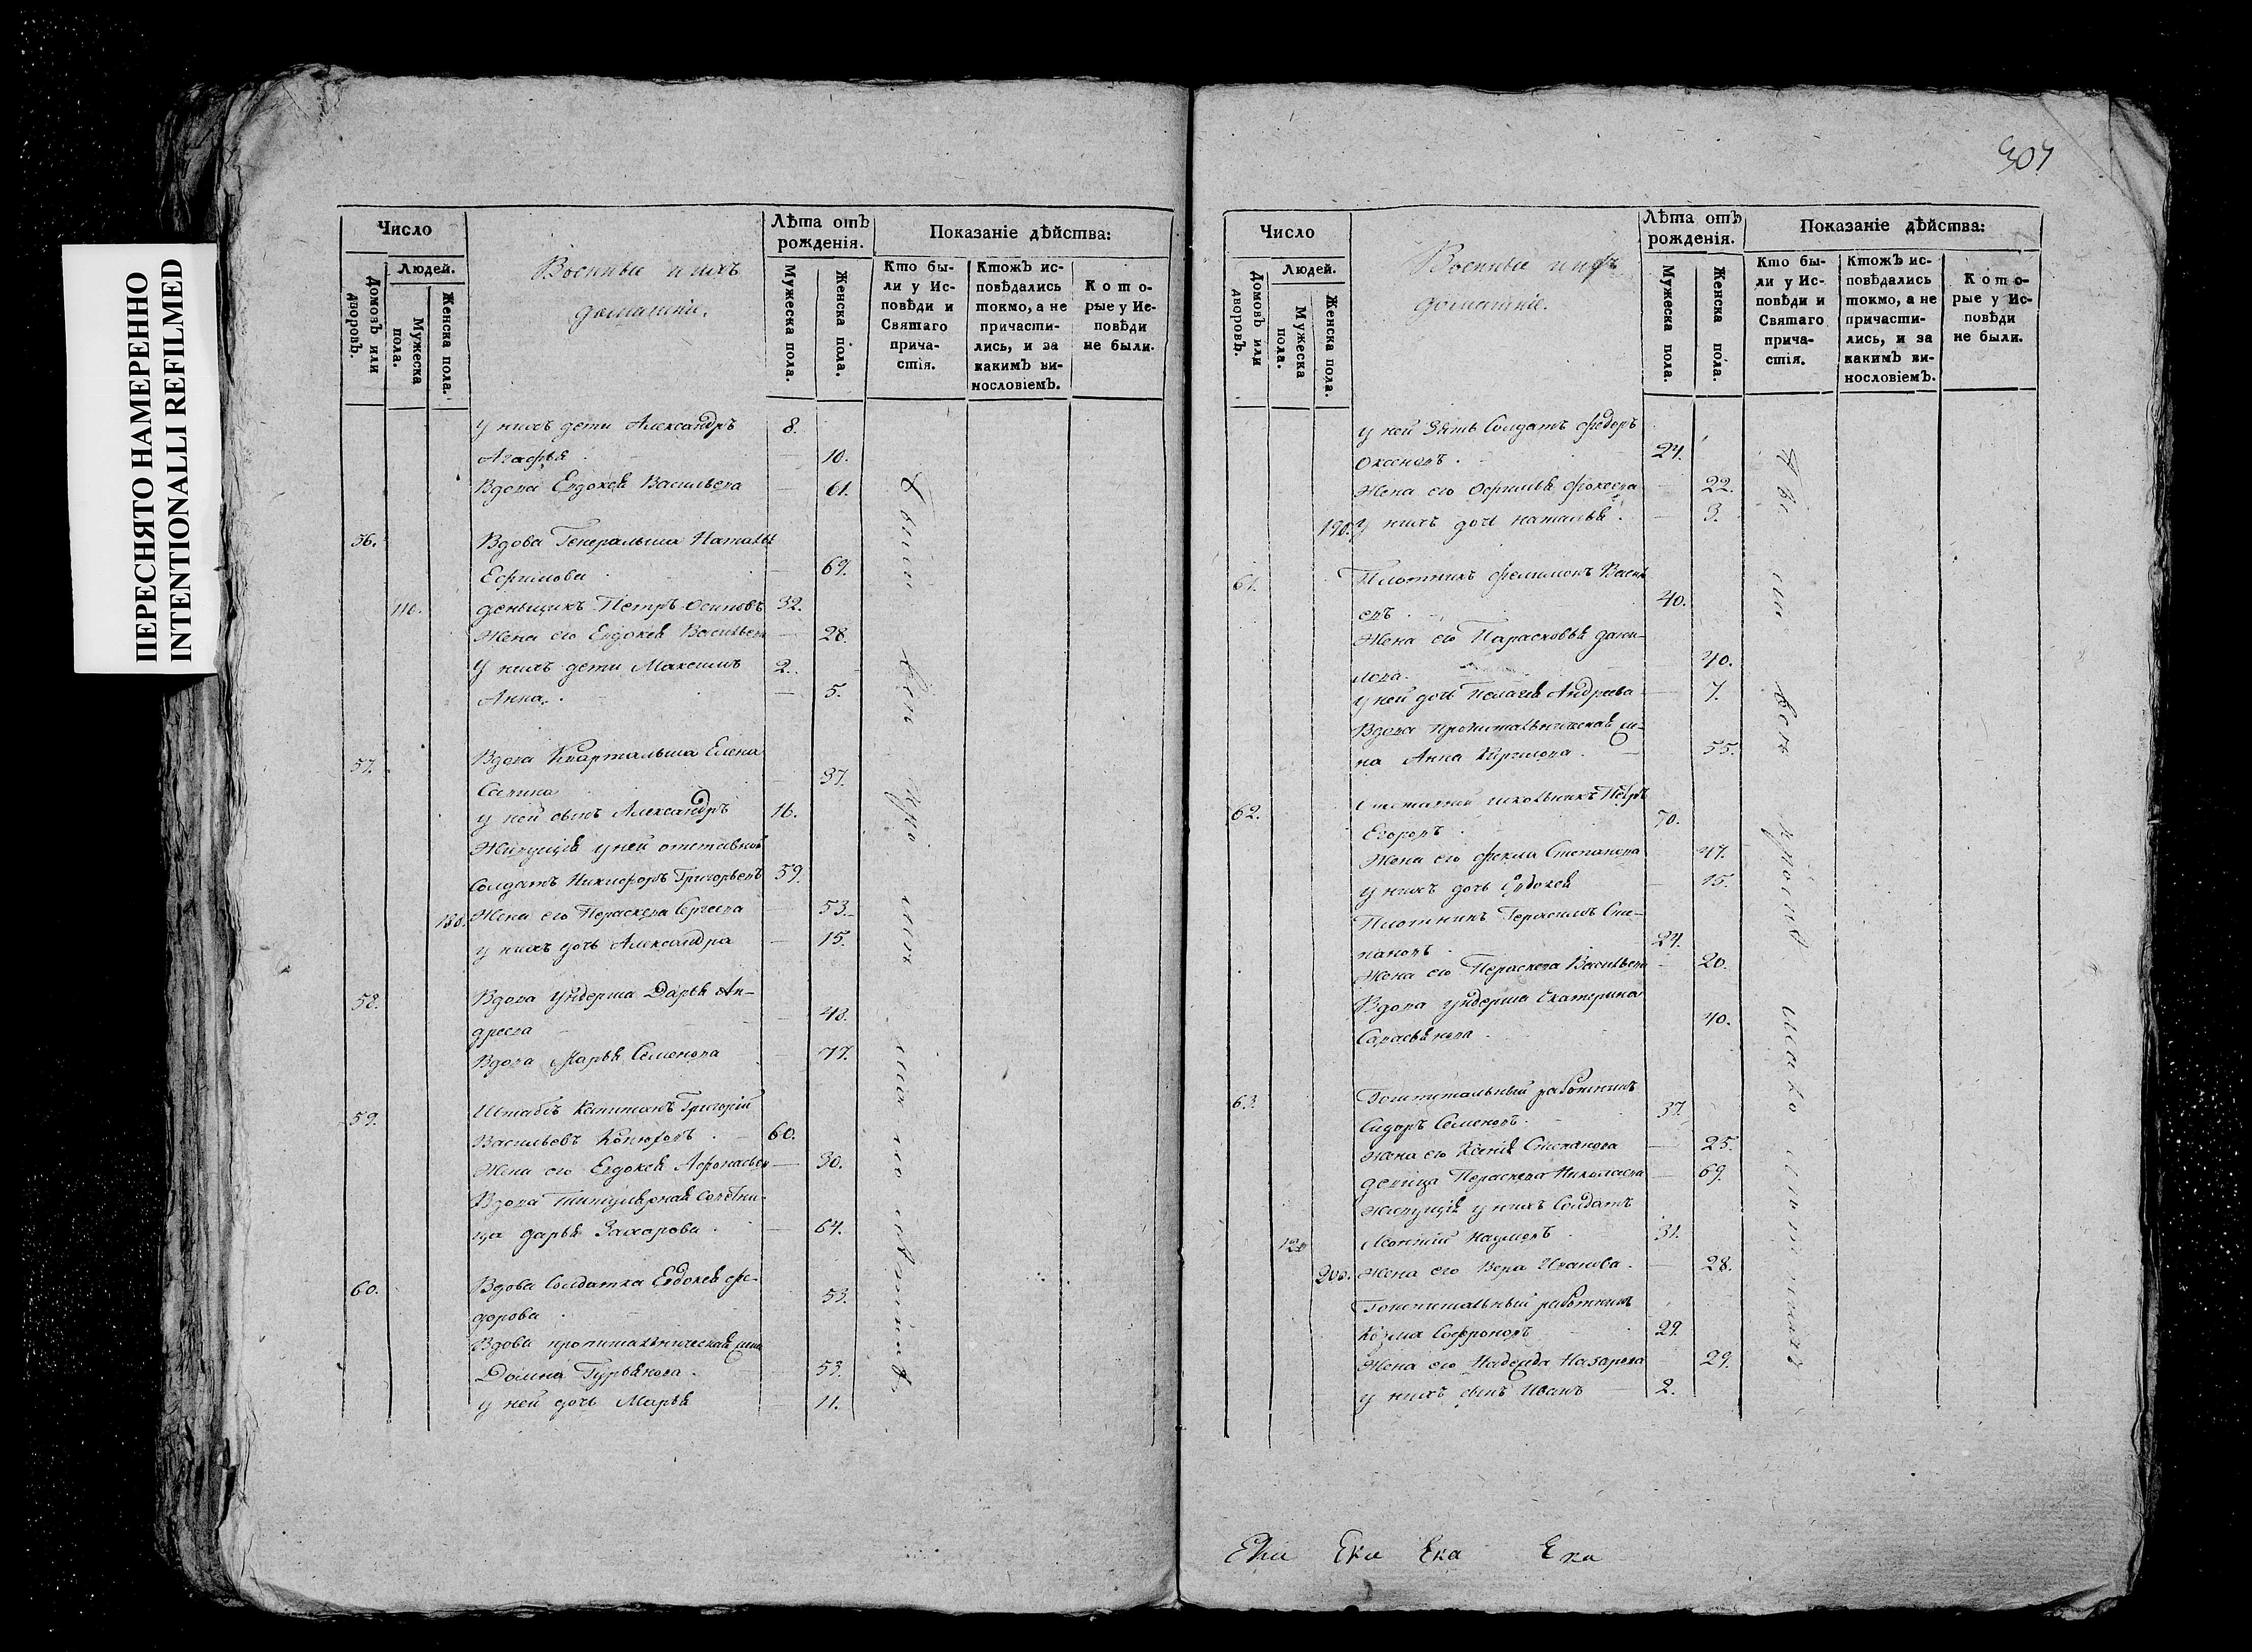 ПЕРЕСНЯТО НАМЕРЕННО
INTENTIONALLI REFILMED
Число
Людей.
Домовъ или дворовъ.
Мужеска пола.
Женска пола.
Военные и ихъ
домашніе.
Лѣта отъ рожденія.
Мужеска пола.
Женска пола.
Показаніе дѣйства:
Кто бы-
ли у Ис-
повѣди и
Святаго
прича-
стія.
Ктожъ ис-
повѣдались
токмо, а не
причасти-
лись, и за
какимъ ви-
нословіемъ.
Кото-
рые у Ис-
повѣди
не были.
у нихъ дети Александръ 8.
Агафья 10.
Вдова Евдокея Васильева 61.
56. Вдова Генеральша Наталья
Ефимова 69.
110. деньщикъ Петръ Осиповъ 32.
Жена его Евдокея Васильева 28.
У нихъ дети Максимъ 2.
Анна. 5.
57. Вдова Квартальша Елена
37.
у ней сынъ Александръ 16.
Живущія у ней отставной
Солдатъ Никифоръ Григорьевъ 59.
180. Жена его Параскева Сергеева 53.
у нихъ дочь Александра 15.
58. Вдова Ундерша Дарья Ан-
дреева 48.
Вдова Марья Семенова 77.
59. Штабсъ Капитанъ Григорій
Васильевъ 60.
Жена его Евдокея Афонасьева 30.
Вдова титулярная советни-
ца Дарья Захарова 64.
60. Вдова Солдатка Евдокея Фе-
дорова 53.
Вдова пропитальническая жена
Домна Гурьянова. 53.
у ней дочь Марья 11.
307
Число
Людей.
Домовъ или дворовъ.
Мужеска пола.
Женска пола.
Военные и ихъ
домашніе.
Лѣта отъ рожденія.
Мужеска пола.
Женска пола.
Показаніе дѣйства:
Кто бы-
ли у Ис-
повѣди и
Святаго
прича-
стія.
Ктожъ ис-
повѣдались
токмо, а не
причасти-
лись, и за
какимъ ви-
нословіемъ.
Кото-
рые у Ис-
повѣди
не были.
у ней Зять Солдатъ Федоръ
24.
Жена его 22.
190. У нихъ дочь Наталья. 3.
61. Плотникъ Филимонъ Василь
евъ. 40.
Жена его Парасковья Дани-
лова. 40.
у ней дочь Пелагея Андреева 7.
Вдова пропитальническая же-
на Анна Кирилова. 55.
62. школьникъ Петръ
Егоровъ 70.
Жена его Фекла Степанова 47.
у нихъ дочь Евдокея 15.
Плотникъ Герасимъ Сте-
пановъ 24.
Жена его Параскева Васильева 20.
Вдова Ундерша Екатерина
40.
63. Гошпитальный работникъ
Сидоръ Семеновъ. 37.
Жена его Ксенія Степанова 25.
девица Параскева Николаева 69.
живущія у нихъ Солдатъ
Наумовъ 31.
200. Жена его Вера Иванова. 28.
Гошпитальный работникъ
Козма Софроновъ 29.
Жена его Надежда Назарова 29.
у нихъ сынъ Иванъ 2.
Ека Ека Ека Ека